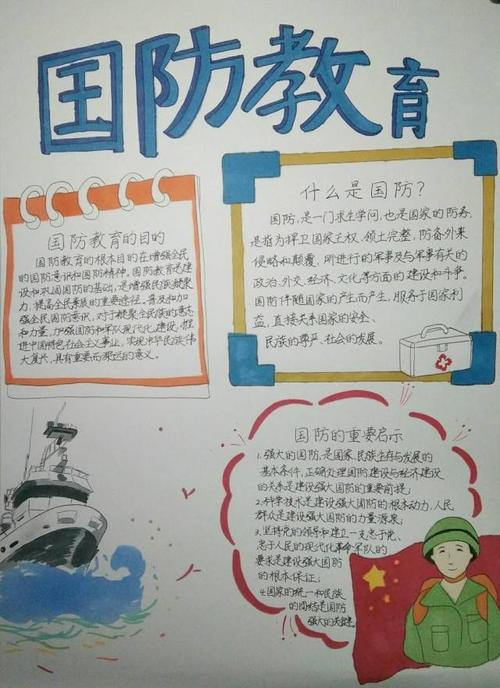 国防教育
国防教育的目的
国防教育的根本目的在增强全民
的国防意识和国防精神。国防教育是建
设和巩固国防的基础,是增强民族凝聚
力,提高全民素质的重要途径。普及和加
强全民国防意识,对于凝聚全民族的意志
和力量,加强国防和军队现代化建设,推
进中国特色社会主义事业,实现中华民族伟
大复兴,具有重要而深远的意义。
什么是国防?
国防,是一门求生学问,也是国家的防务,
是指为捍卫国家主权、领土完整,防备外来
侵略和颠覆,所进行的军事及与军事有关的
政治、外交、经济、文化等方面的建设和斗争。
国防伴随国家的产生而产生,服务于国家利
益,直接关系国家的安全、
民族的尊严、社会的发展。
国防的重要启示
1.强大的国防,是国家、民族生存与发展的
基本条件,正确处理国防建设与经济建设
的关系是建设强大国防的重要前提;
2.科学技术是建设强大国防的根本动力,人民
群众是建设强大国防的力量源泉;
3.坚持党的领导和建立一支忠于党、
忠于人民的现代化革命军队的
要求是建设强大国防
的根本保证;
4.国家的统一和民族
的团结是国防
强大的关键。